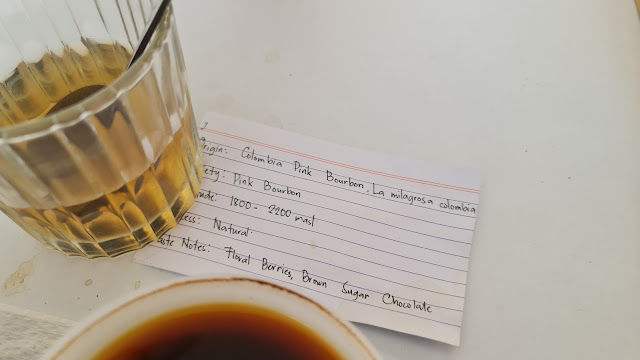 rigin: Colombia Pink Bourbon, La milagrosa colombia
iety: Pink Bourbon
ude: 1800 - 2200 masl
cess: Natural.
aste Notes: Floral Berries, Brown Sugar Chocolate